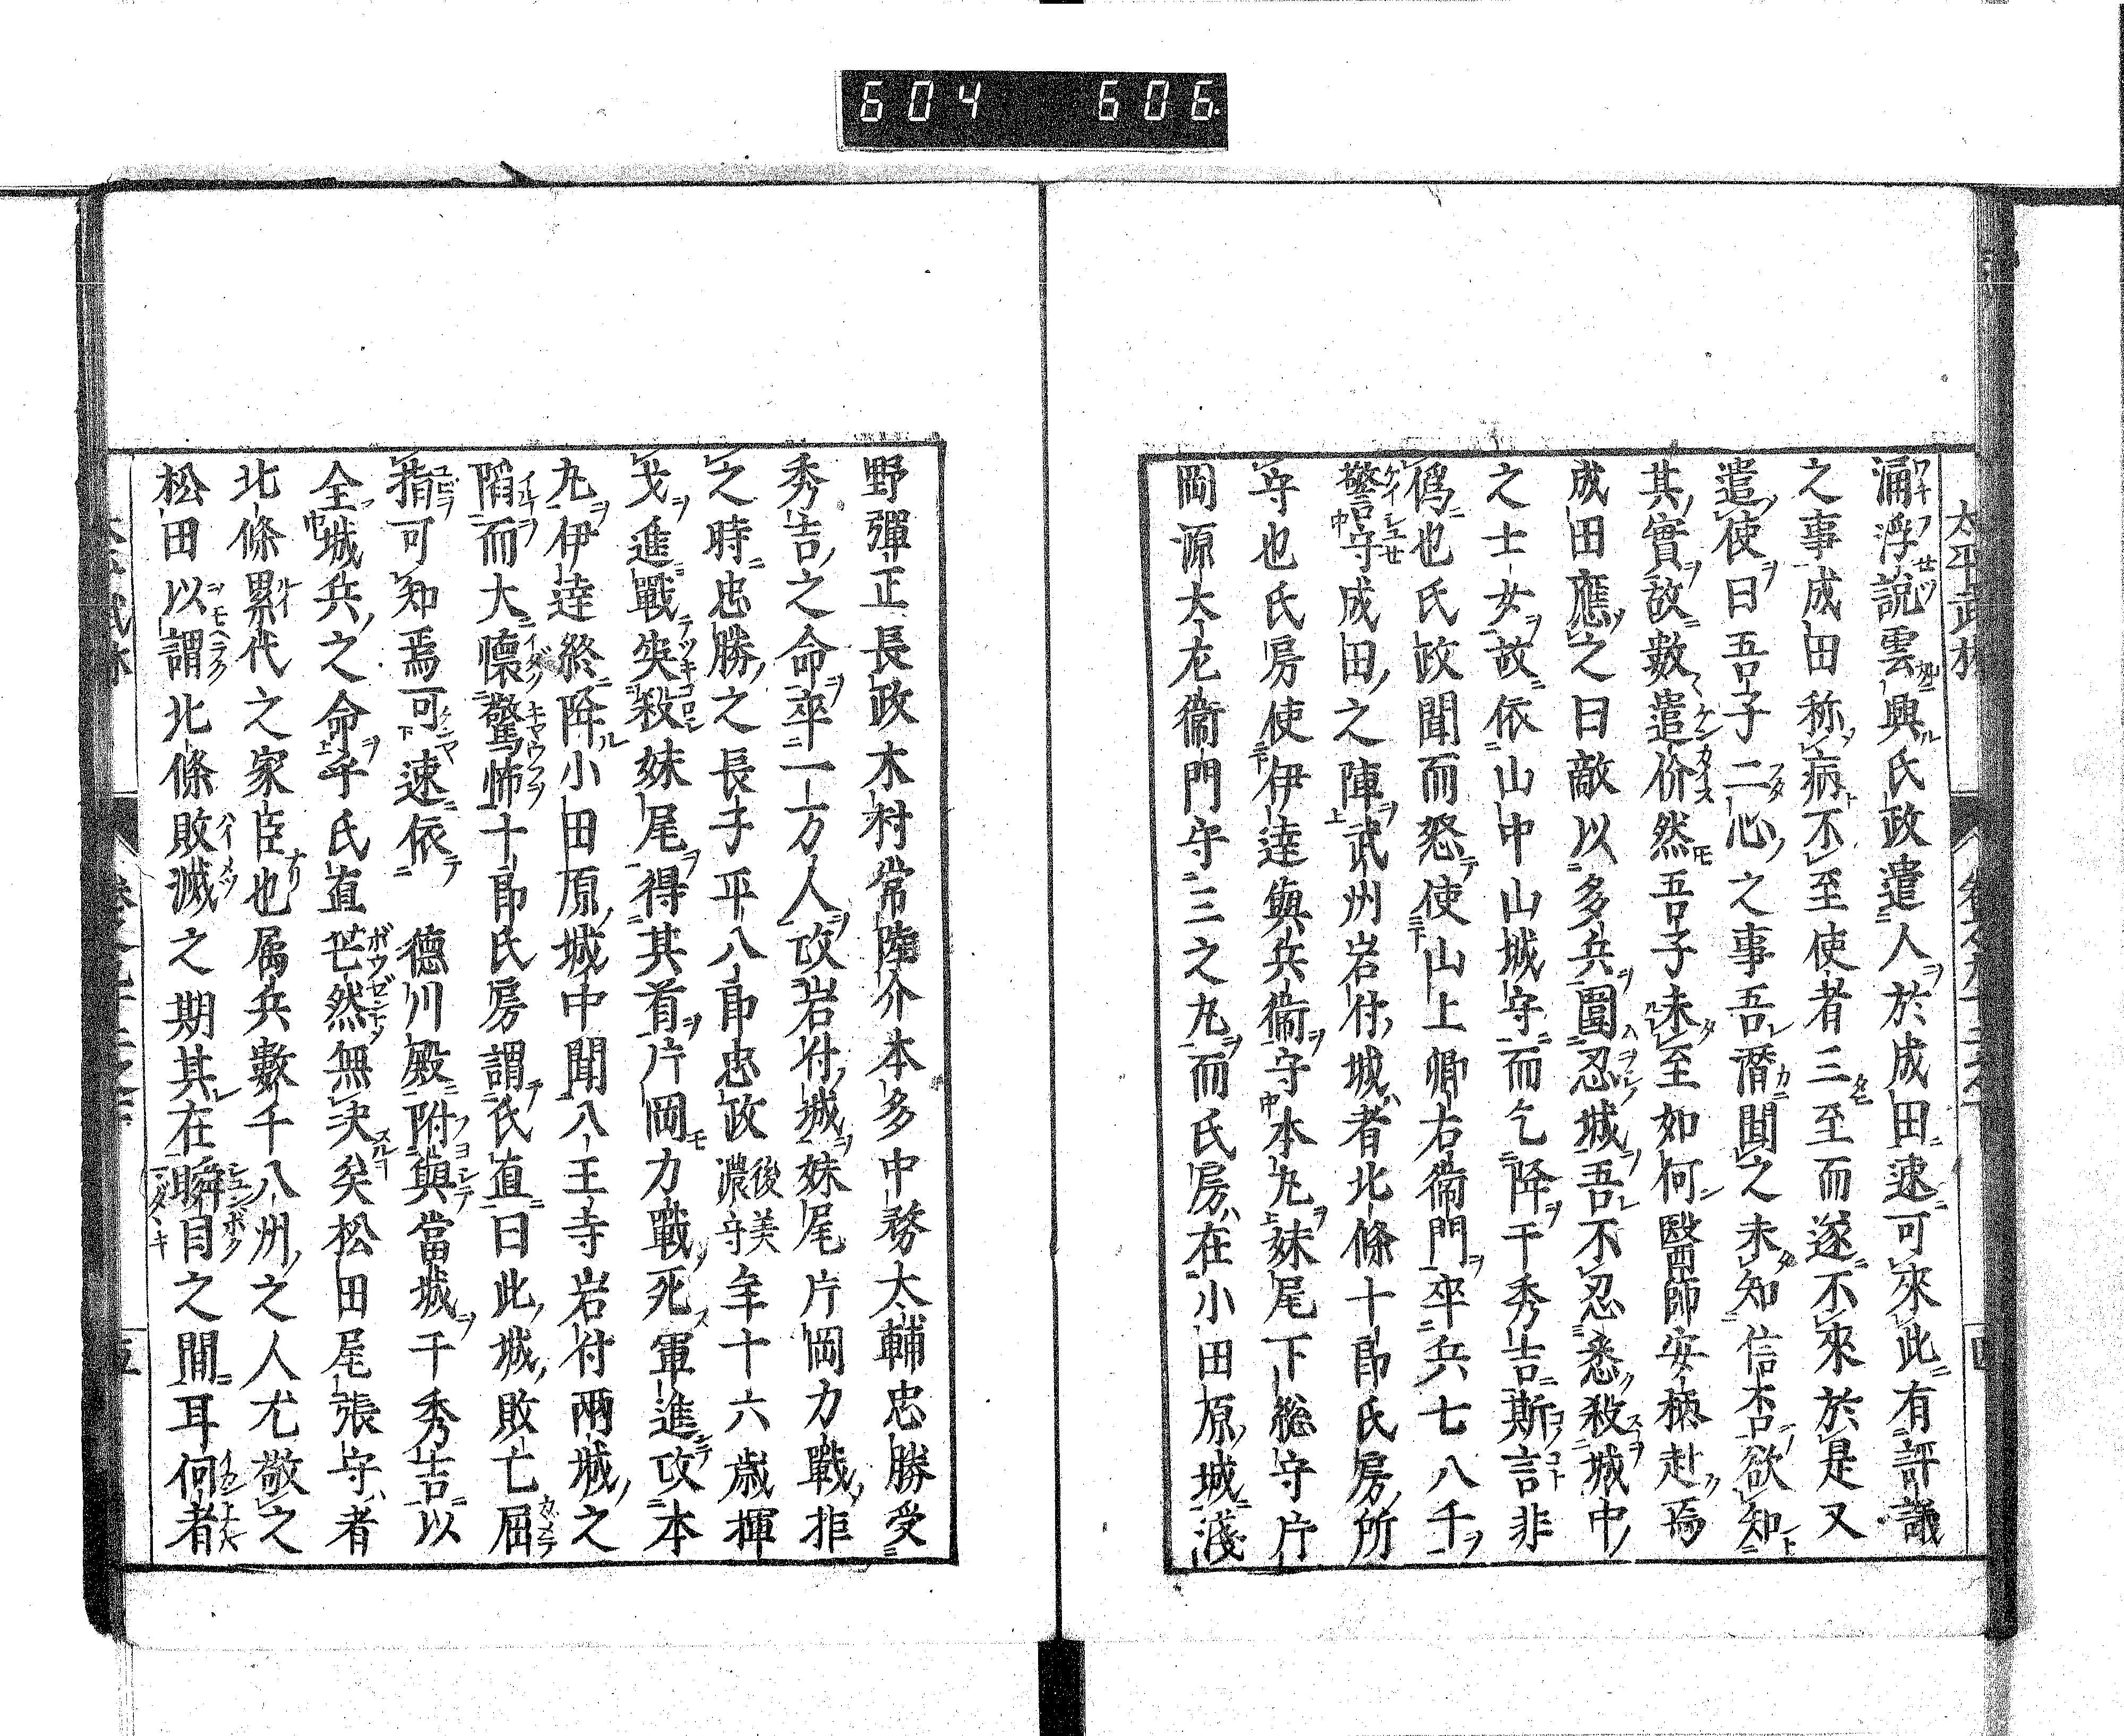 604 606
涌浮説雲興氏政遣人於成田速可來此有評議
之事成田称病不至使者三至而遂不來於是又
遣使曰吾子二心之事吾潛聞之未知信否欲知
其實故數遣价然吾子未至如何醫師安栖赴焉
成田應之曰敵以多兵圍忍城吾不忍悉殺城中
之士女故依山中山城守而乞降于秀吉斯言非
僞也氏政聞而怒使山上卿右衞門卒兵七八千
警守成田之陣武州岩付城者北條十郎氏房所
守也氏房使伊達與兵衞守本丸妹尾下総守片
岡源太左衞門守三之丸而氏房在小田原城淺
野彈正長政木村常陸介本多中務太輔忠勝受
秀吉之命卒一万人攻岩付城妹尾片岡力戰拒
之時忠勝之長子平八郎忠政後美濃守年十六歳揮
戈進戰突殺妹尾得其首片岡力戰死軍進攻本
丸伊達終降小田原城中聞八王寺岩付兩城之
陷而大懷驚怖十郎氏房謂氏直曰此城敗亡屈
指可知焉可速依 德川殿附與當城于秀吉以
全城兵之命乎氏直茫然無决矣松田尾張守者
北條累代之家臣也属兵數千八州之人尤敬之
松田以謂北條敗滅之期其在瞬目之間耳何者